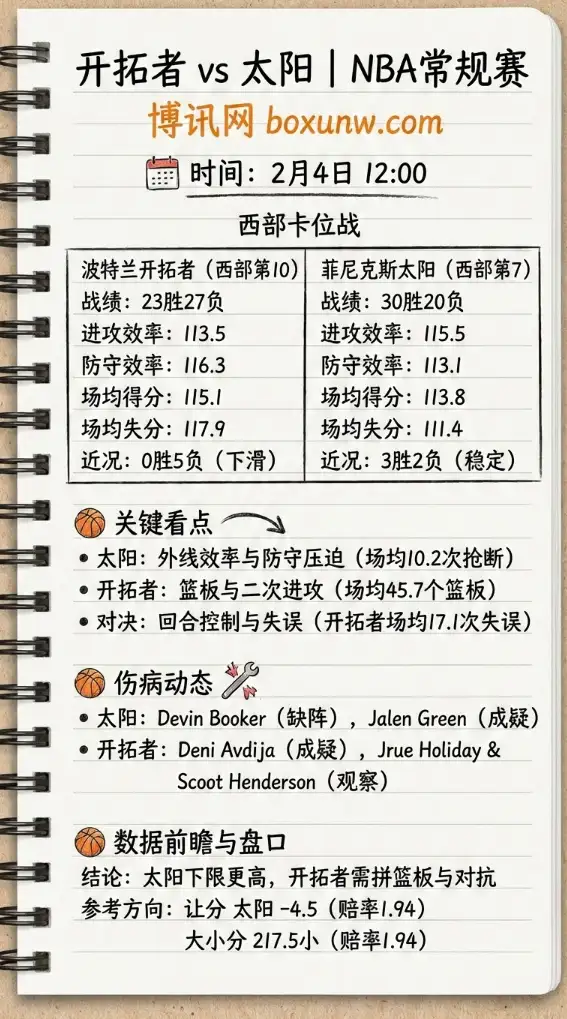 开拓者 vs 太阳 | NBA常规赛
博讯网 boxunw.com
时间：2月4日 12:00
西部卡位战
波特兰开拓者（西部第10）
战绩：23胜27负
进攻效率：113.5
防守效率：116.3
场均得分：115.1
场均失分：117.9
近况：0胜5负（下滑）
菲尼克斯太阳（西部第7）
战绩：30胜20负
进攻效率：115.5
防守效率：113.1
场均得分：113.8
场均失分：111.4
近况：3胜2负（稳定）
关键看点
• 太阳：外线效率与防守压迫（场均10.2次抢断）
• 开拓者：篮板与二次进攻（场均45.7个篮板）
• 对决：回合控制与失误（开拓者场均17.1次失误）
伤病动态
• 太阳：Devin Booker（缺阵），Jalen Green（成疑）
• 开拓者：Deni Avdija（成疑），Jrue Holiday &
Scoot Henderson（观察）
数据前瞻与盘口
结论：太阳下限更高，开拓者需拼篮板与对抗
参考方向：让分 太阳 -4.5（赔率1.94）
大小分 217.5小（赔率1.94）